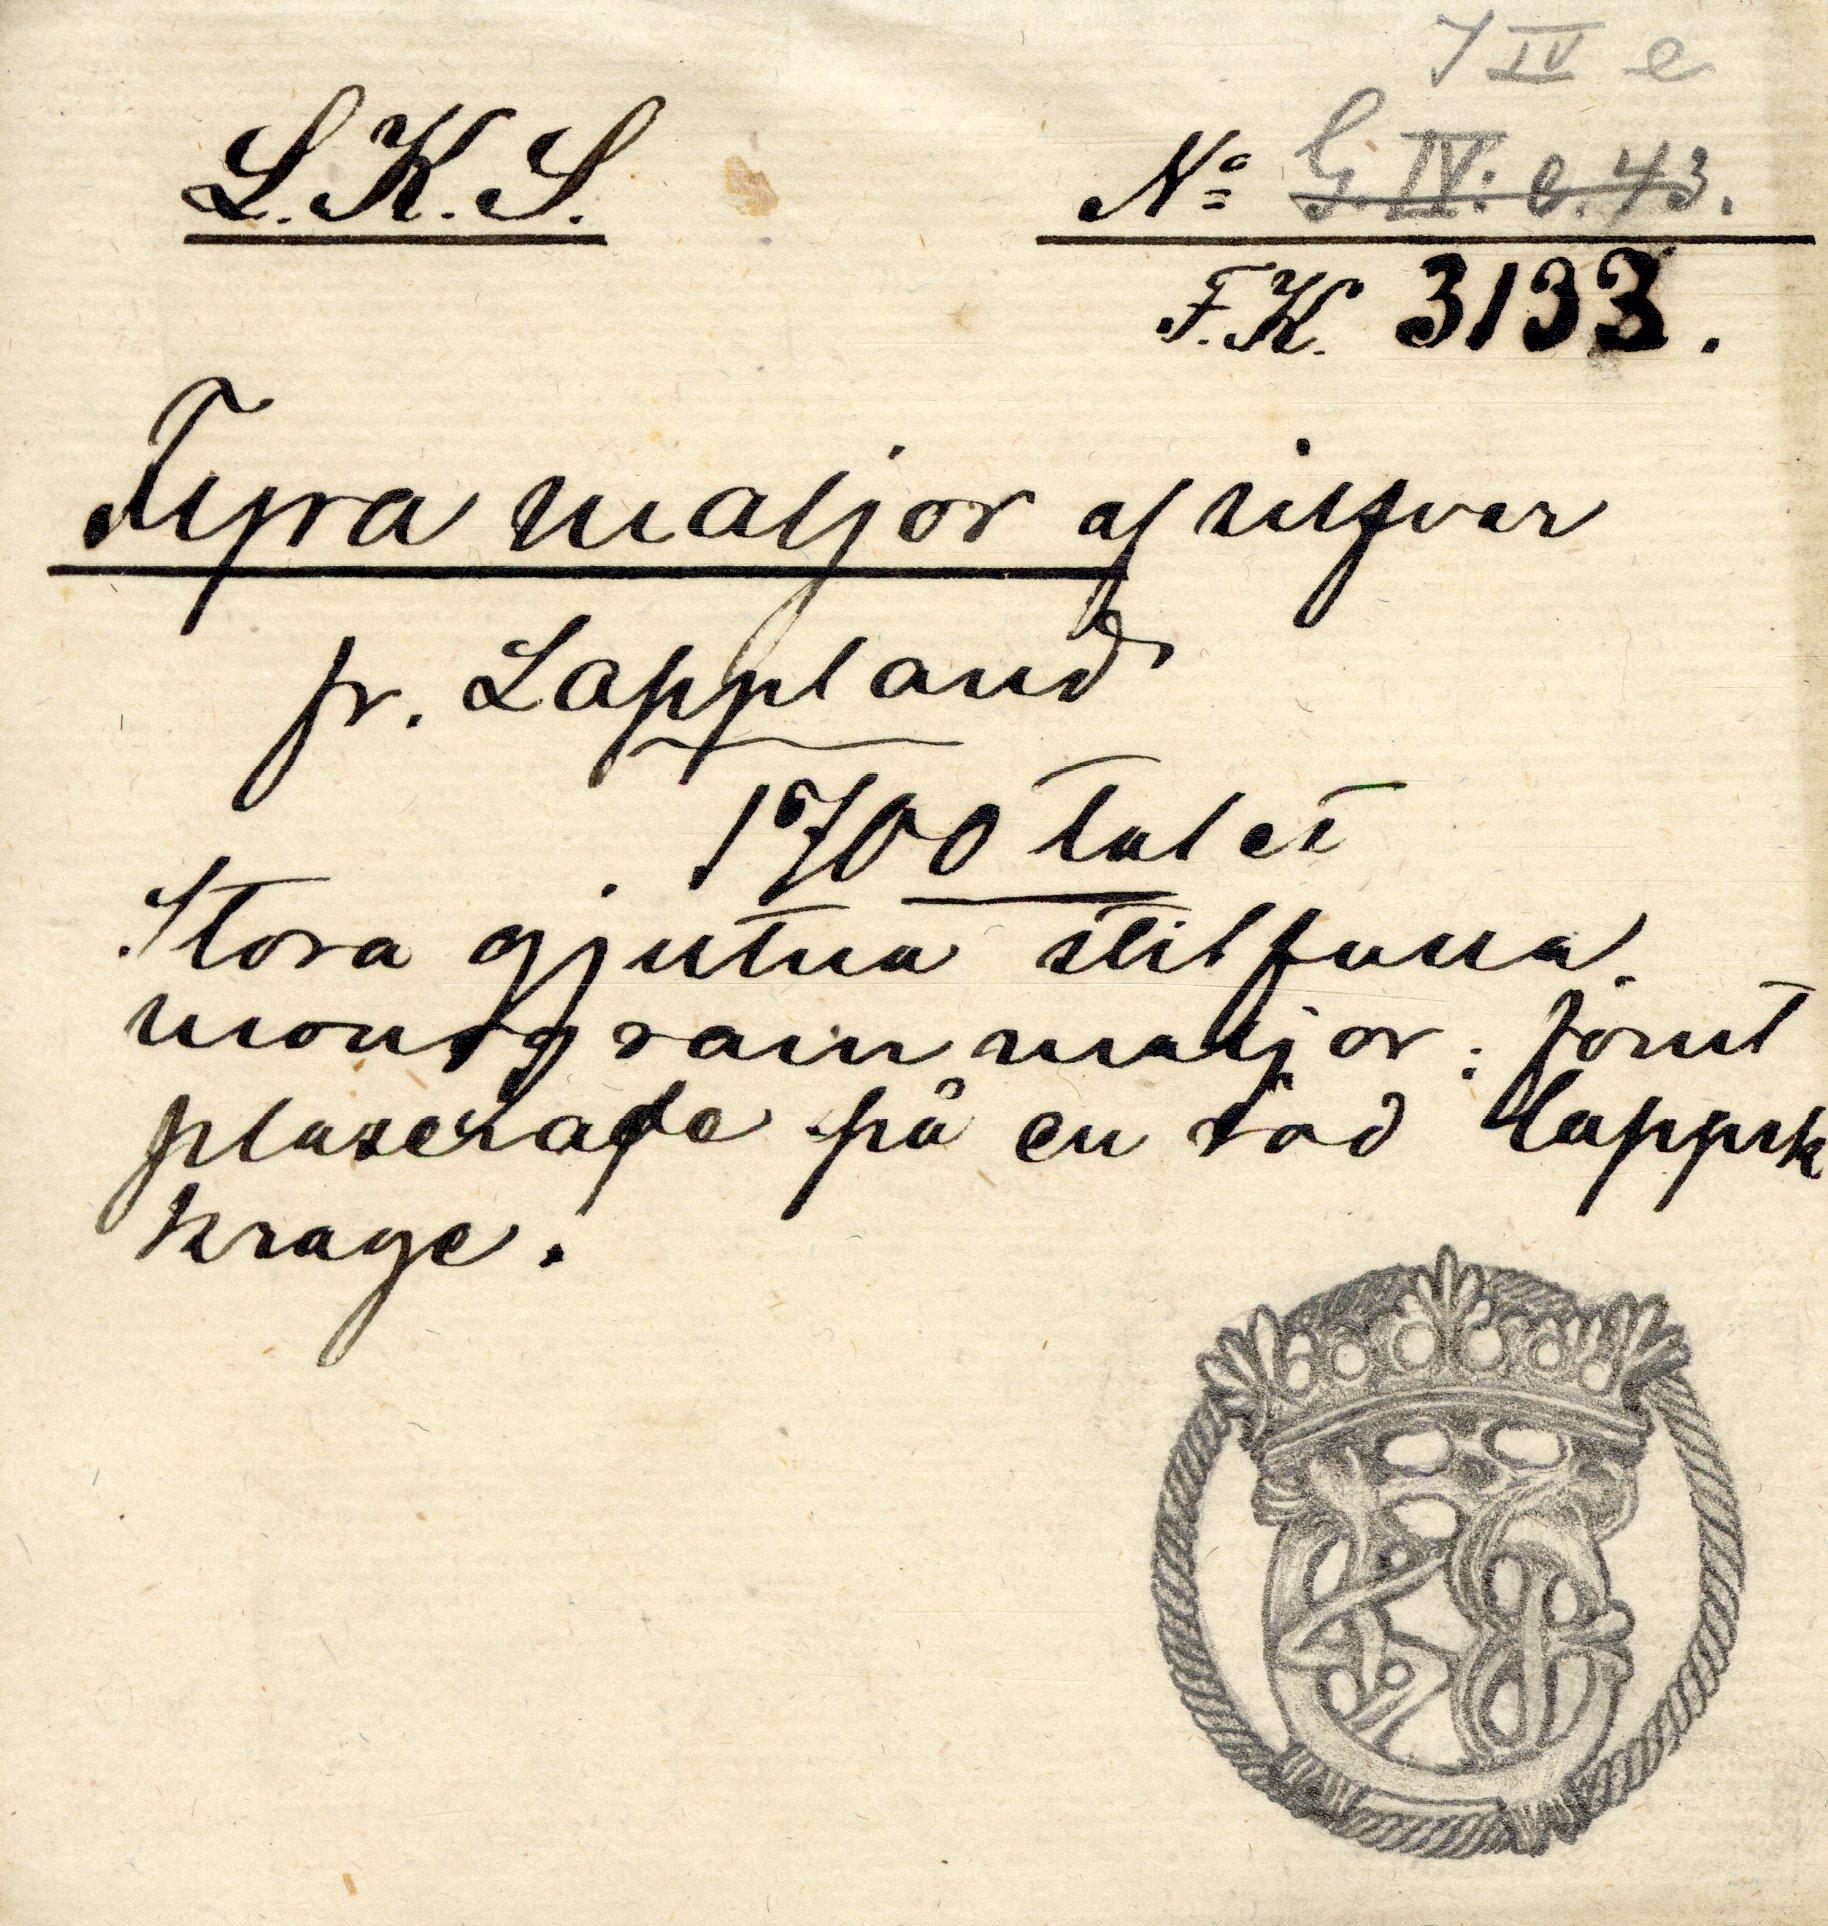 I IV e
L.K.S. No G. IV: e. 43.
F.K. 3133.
Fyra maljor af silfver
fr. Lappland
1700 talet
Stora gjutna stilfulla
monogram maljor. Jämt
plaserade på en röd lappsk
krage.